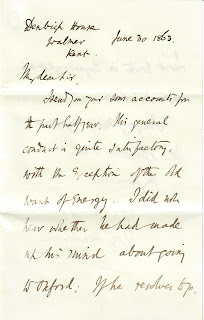 Denbigh House
Walmer June 30 1863.
Kent.
My dear Sir,
I send you your sons accounts for
the past half year. His general
conduct is quite satisfactory,
with the Exception of the old
want of Energy. I did not
hear whether he had made
up his mind about going
to Oxford; If he resolves to